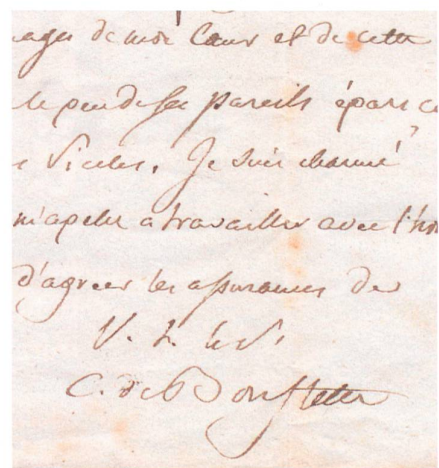 de mon Cœur et de cette
le peu de ses pareils épars
siecles. Je suis charmé
m'apelle a travailler avec l'ho
d'agreer les assurances de
V. t.
C. de Bonstetten